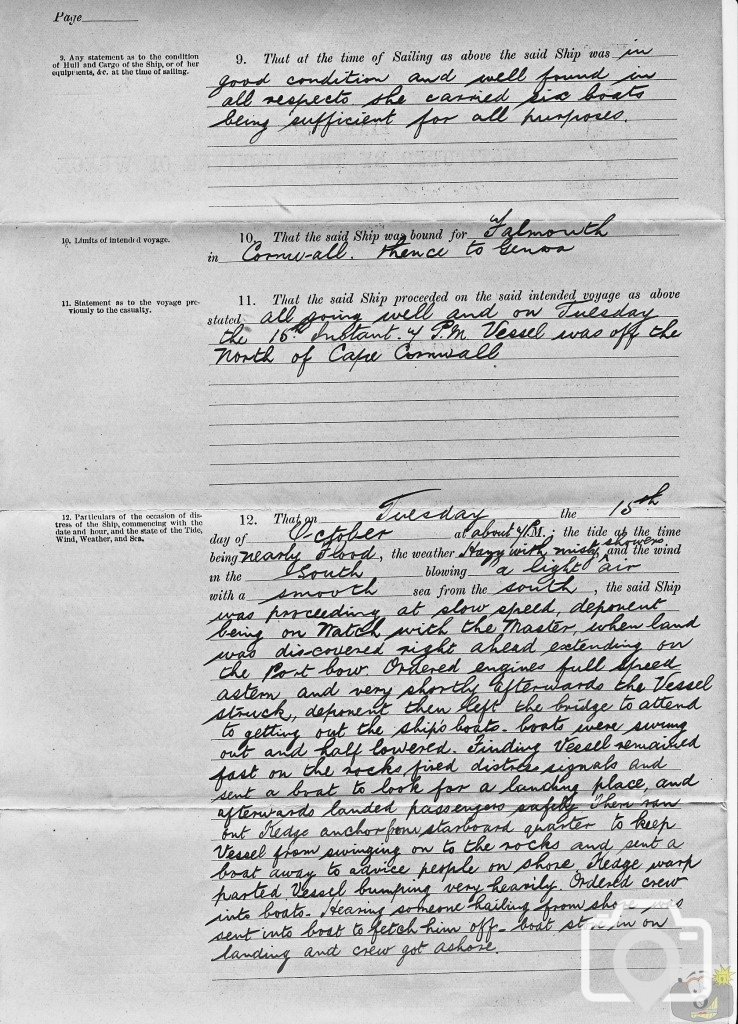 Page
9. Any statement as to the condition
of Hull and Cargo of the Ship, or of her
equipments, &c. at the time of sailing.
9. That at the time of Sailing as above the said Ship was in
good condition and well found in
all respects she carried six boats
being sufficient for all purposes.
10. Limits of intended voyage.
10. That the said Ship was bound for Falmouth
in Cornwall. thence to Genoa
11. Statement as to the voyage pre-
viously to the casualty.
11. That the said Ship proceeded on the said intended voyage as above
stated all going well and on Tuesday
the 15th Instant. 4 P.M. Vessel was off the
North of Cape Cornwall
12. Particulars of the occasion of dis-
tress of the Ship, commencing with the
date and hour, and the state of the Tide,
Wind, Weather, and Sea.
12. That on Tuesday the 15th
day of October at about 4 P.M. the tide at the time
being nearly Flood, the weather Hazy with misty showers and the wind
in the South blowing a light air
with a smooth sea from the south, the said Ship
was proceeding at slow speed, deponent
being on Watch with the Master, when land
was discovered right ahead extending on
the Port bow. Ordered engines full speed
astern and very shortly afterwards the Vessel
struck, deponent then left the bridge to attend
to getting out the ship's boats. boats were swung
out and half lowered. Finding Vessel remained
fast on the rocks fired distress signals and
sent a boat to look for a landing place, and
afterwards landed passengers safely. Then ran
out Kedge anchor from starboard quarter to keep
Vessel from swinging on to the rocks and sent a
boat away to advice people on shore Kedge warp
parted, Vessel bumping very heavily. Ordered crew
into boats. Hearing someone hailing from shore
sent into boat to fetch him off - boat in on
landing and crew got ashore.